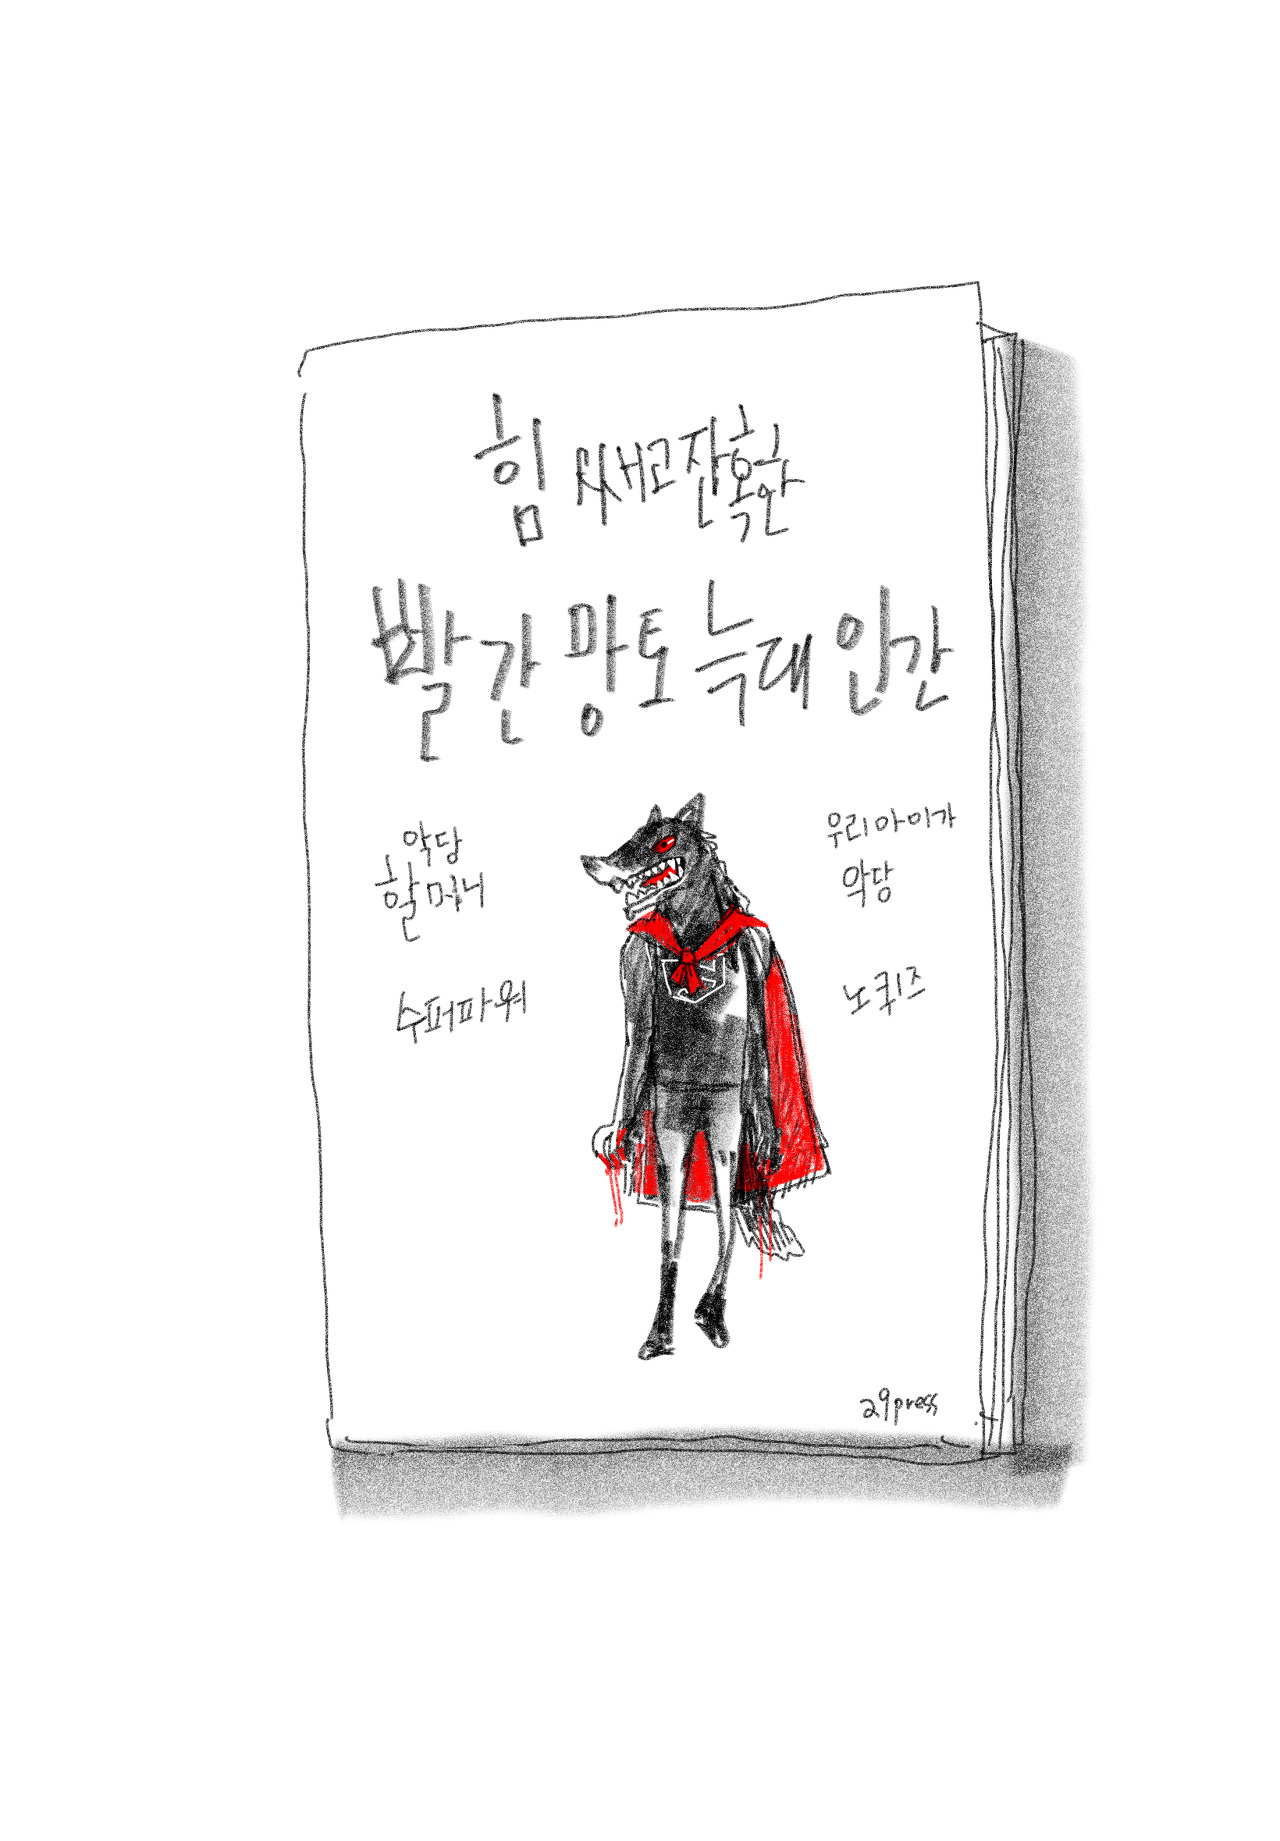 힘 쎄고 잔혹한
빨간 망토 늑대 인간
악당
할머니
수퍼파워
우리 아이가
악당
노퀴즈
29press